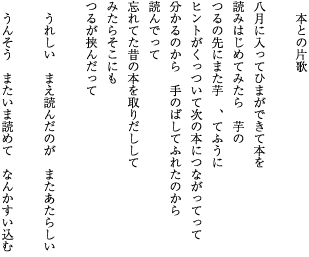 本との片歌
八月に入ってひまができて本を
読みはじめてみたら　芋の
つるの先にまた芋　、てふうに
ヒントがくっついて次の本につながってって
分かるのから　手のばしてふれたのから
読んでって
忘れてた昔の本を取りだしして
みたらそこにも
つるが挟んだって
うれしい　まえ読んだのが　またあたらしい
うんそう　またいま読めて　なんかすい込む